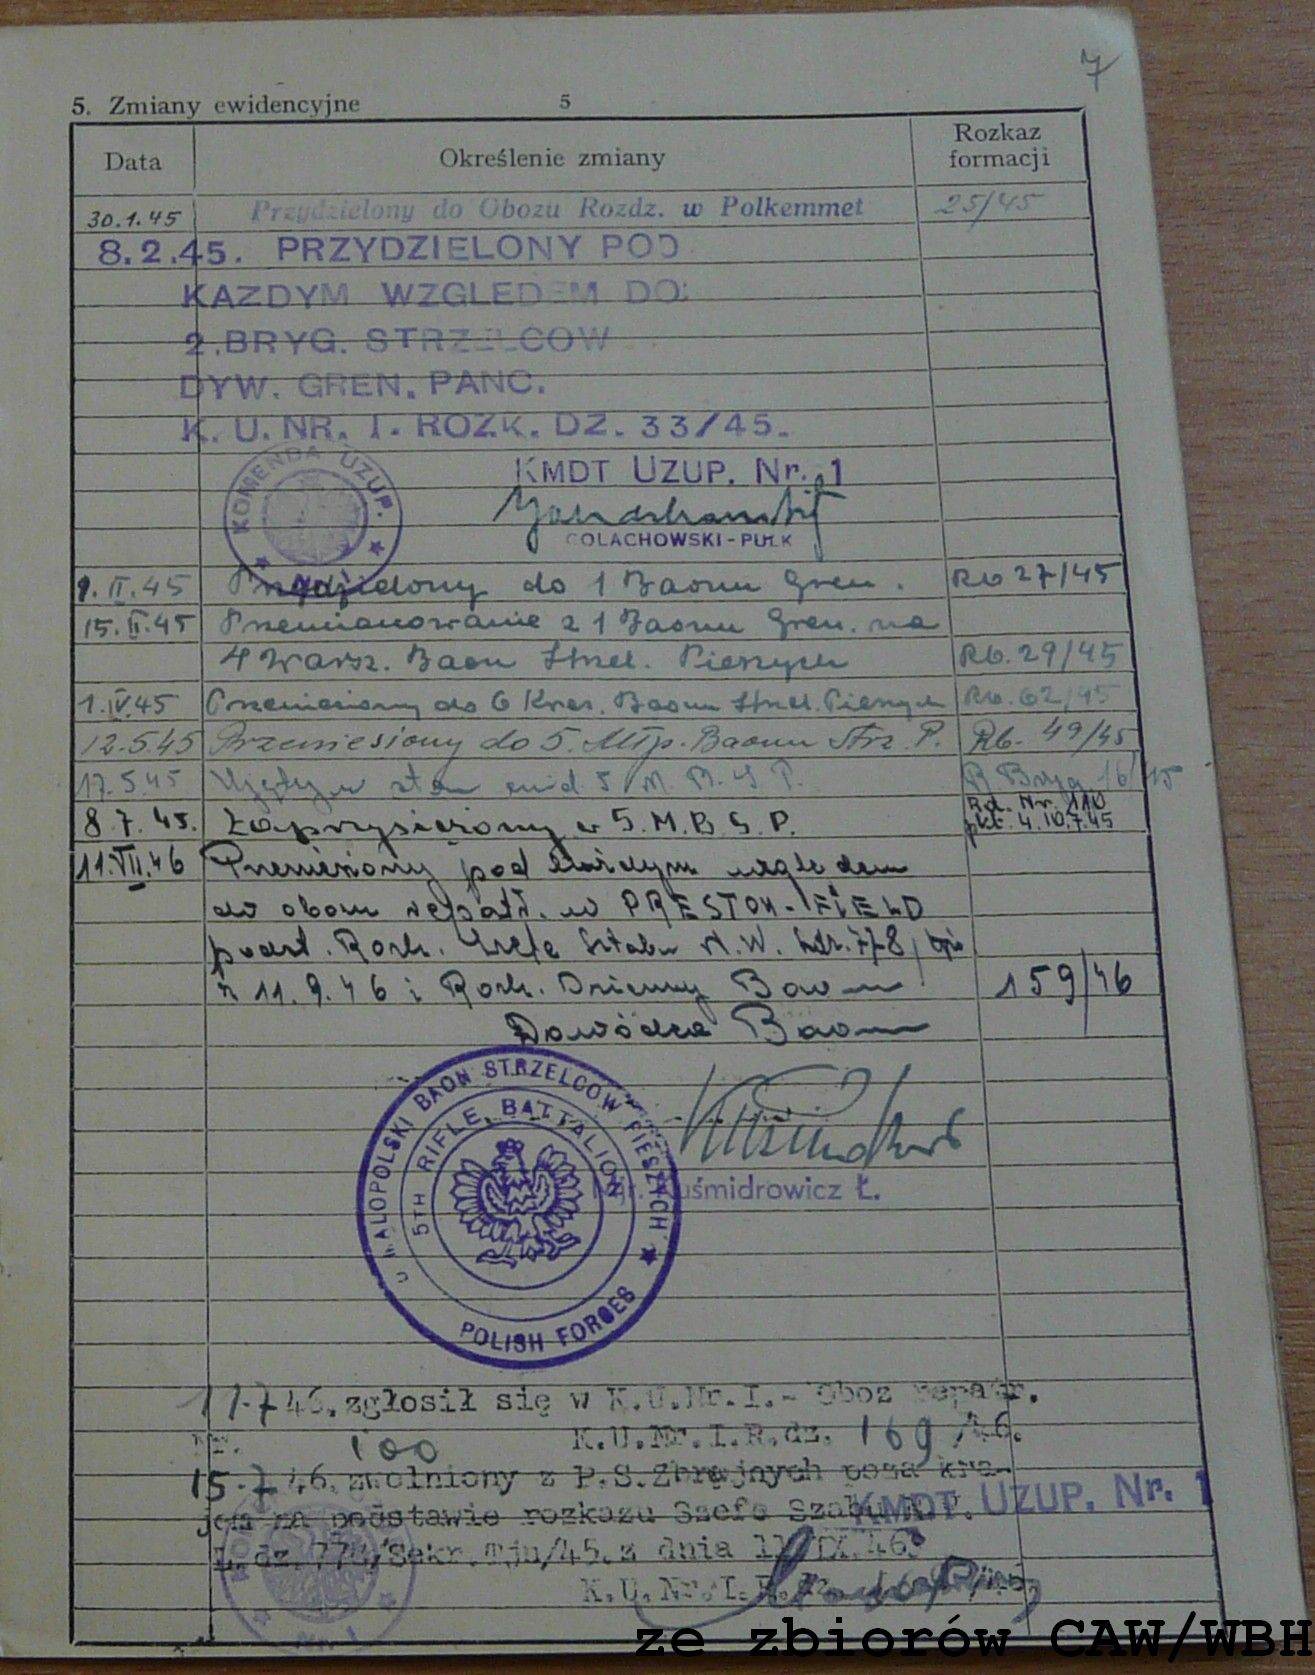 7
5. Zmiany ewidencyjne 5
Data Określenie zmiany Rozkaz formacji
30.1.45 Przydzielony do Obozu Rozdz. w Polkemmet 25/45
8.2.45. PRZYDZIELONY POD
KAZDYM WZGLEDEM DO:
2.BRYG. STRZELCOW
DYW. GREN. PANC.
K. U. NR. I. ROZK. DZ. 33/45.
KOMENDA UZUP.
KMDT UZUP. Nr. 1
GOLACHOWSKI-PUŁK
9.II.45 Przydzielony do 1 Baonu Gren. Rb 27/45
15.II.45 Przemianowanie z 1 Baonu Gren. na
4 Warsz. Baon Strzel. Pieszych Rb. 29/45
1.IV.45 Przeniesiony do 6 Kres. Baonu Strzel. Pieszych Rb. 62/45
12.5.45 Przeniesiony do 5. Młp. Baonu Strz. P. Rb. 49/45
17.5.45 Ujęty w stan ewid 5 M. B. S P. R Bryg 16/45
8.7.45. Zaprzysiężony w 5.M.B.S.P. Rd. Nr. 110 pkt. 4. 10.7.45
11.VII.46 Przeniesiony pod każdym względem
do obozu repatr. w PRESTON-FIELD
podst. Rozk. Szefa Sztabu N.W. 778
z 11.9.46 i Rozk. Dzienny Baonu 159/46
Dowódca Baonu
MAŁOPOLSKI BAON STRZELCOW PIESZYCH
5TH RIFLE BATTALION
POLISH FORCES
Mjr. Kuśmidrowicz Ł.
11.7 46. zgłosił się w K.U.Nr.I.- Oboz repatr.
Nr. 100 K.U.Nr.I.R.dz. 169/46.
15.7 46. zwolniony z P.S.Zbrojnych poza kra-
jem na podstawie rozkazu Szefa Sztabu N.W.
KMDT. UZUP. Nr. 1
L.dz. 778/Sekr.Tjn/45. z dnia 11/IX.46.
K.U.Nr.I.R.dz.
Nr 1
ze zbiorów CAW/WBH